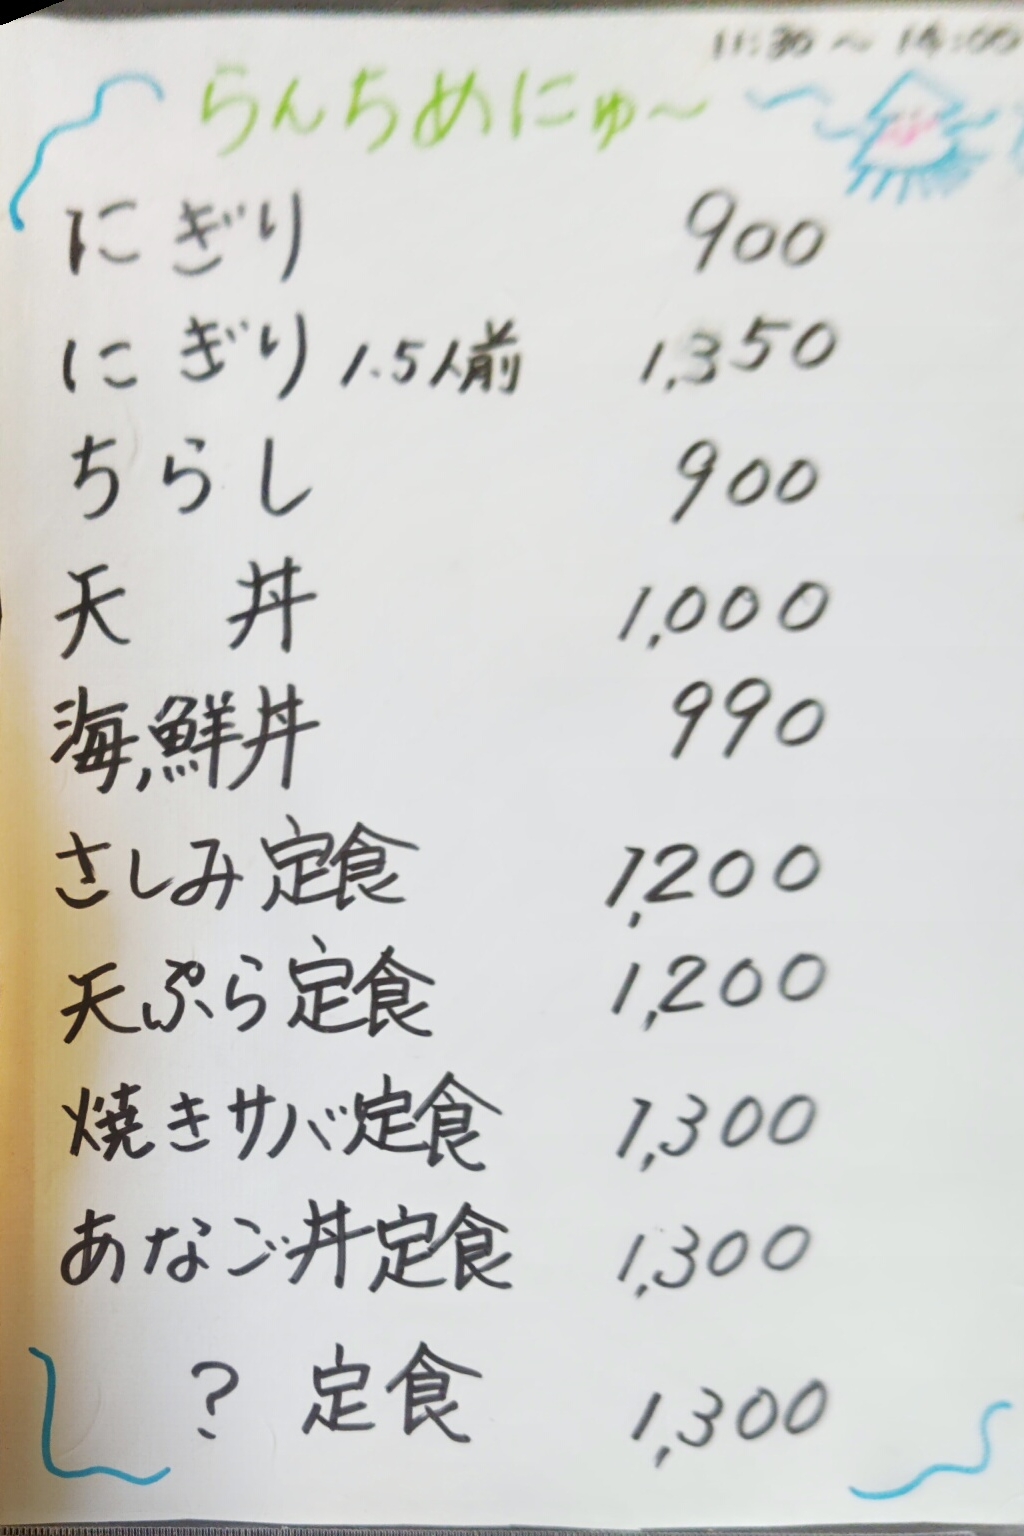 11:30～14:00
らんちめにゅ～
にぎり 900
にぎり 1.5人前 1,350
ちらし 900
天丼 1,000
海鮮丼 990
さしみ定食 1,200
天ぷら定食 1,200
焼きサバ定食 1,300
あなご丼定食 1,300
? 定食 1,300